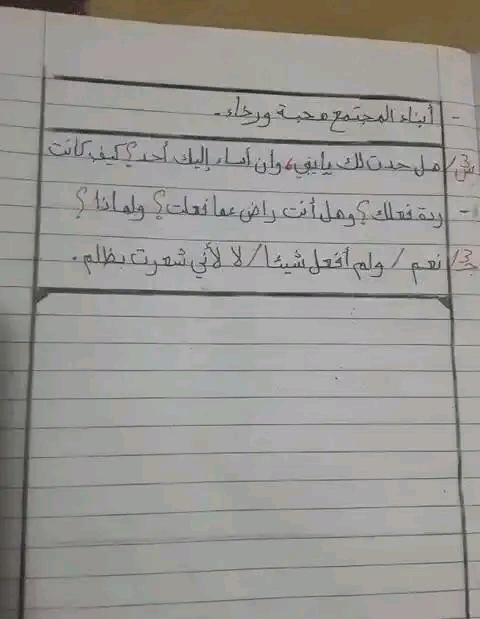 - أبناء المجتمع محبة ورخاء.
س3/ هل حدث لك يا بني، وأن أساء إليك أحد؟ كيف كانت
- ردة فعلك؟ وهل أنت راض عما فعلت؟ ولماذا؟
ج3/ نعم / ولم أفعل شيئا / لا لأني شعرت بظلم.